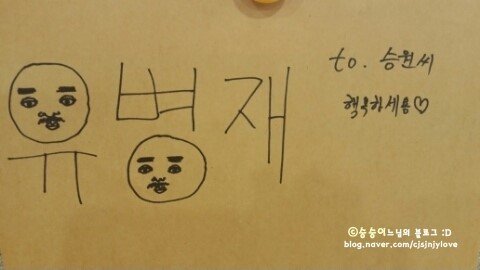 유병재
to. 승원씨
행복하세용♡
ⓒ승승어느님의 블로그 :D
blog.naver.com/cjsjnjylove